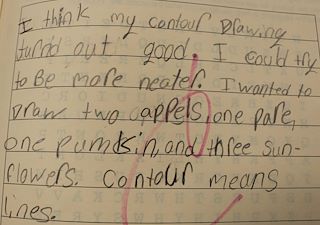 I think my contour Drawing
turnd out good. I could try
to Be more neater. I wanted to
Draw two appels, one pare,
one pumdkin, and three sun-
flowers. Contour means
lines.